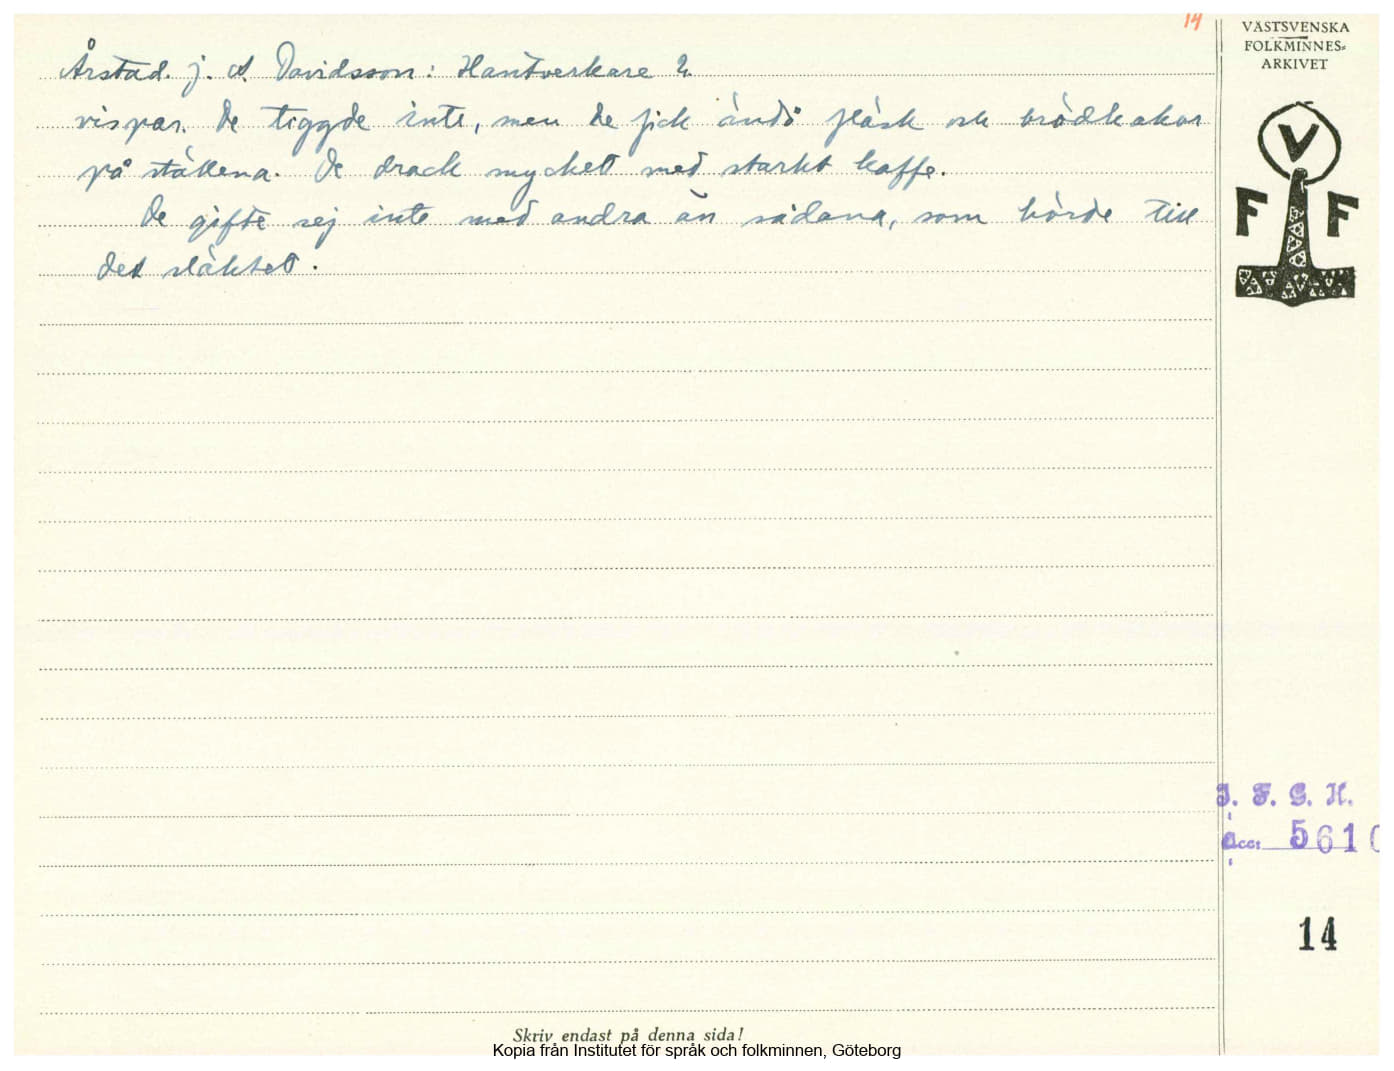 14
VÄSTSVENSKA
FOLKMINNES=
ARKIVET
Årstad. j. A. Davidsson: Hantverkare 2.
vispar. De tiggde inte, men de fick ändå fläsk och brödkakor
på ställena. De drack mycket med starkt kaffe.
De gifte sej inte med andra än sådana, som hörde till
det släktet.
V
F F
I. F. G. H.
Acc: 5610
14
Skriv endast på denna sida!
Kopia från Institutet för språk och folkminnen, Göteborg